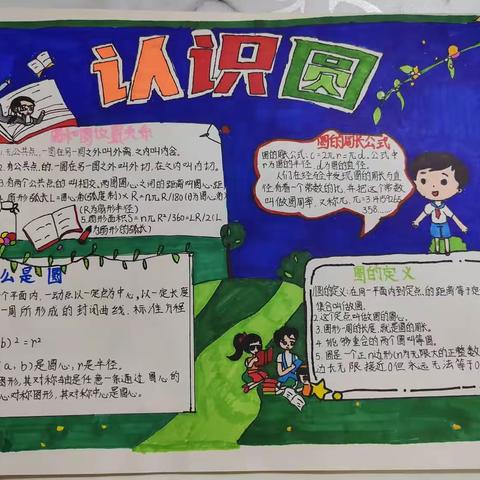 认识圆
圆和圆位置关系
1.无公共点,一圆在另一圆之外叫外离,之内叫内含。
2.有公共点的,一圆在另一圆之外叫外切,在之内叫内切。
3.有两个公共点的叫相交,两圆圆心之间的距离叫圆心距。
(R为扇形半径)
5.扇形面积S=nπR²/360=LR/2(L
为扇形的弧长)
圆的周长公式
圆的周长公式:C=2πr=πd。公式中
r为圆的半径,d为圆的直径。
么是圆
个平面内,一动点以一定点为中心,以一定长度
一周所形成的封闭曲线,标准方程
b)²=r²
(a,b)是圆心,r是半径。
图形,其对称轴是任意一条通过圆心的
心对称图形,其对称中心是圆心。
圆的定义
圆的定义:在同一平面内到定点的距离等于定
集合叫做圆。
2.这个定点叫做圆的圆心。
3.图形一周的长度,就是圆的周长。
4.能够重合的两个圆叫等圆。
5.圆是一个正n边形(n为无限大的正整数
边长无限接近0但永远无法等于0